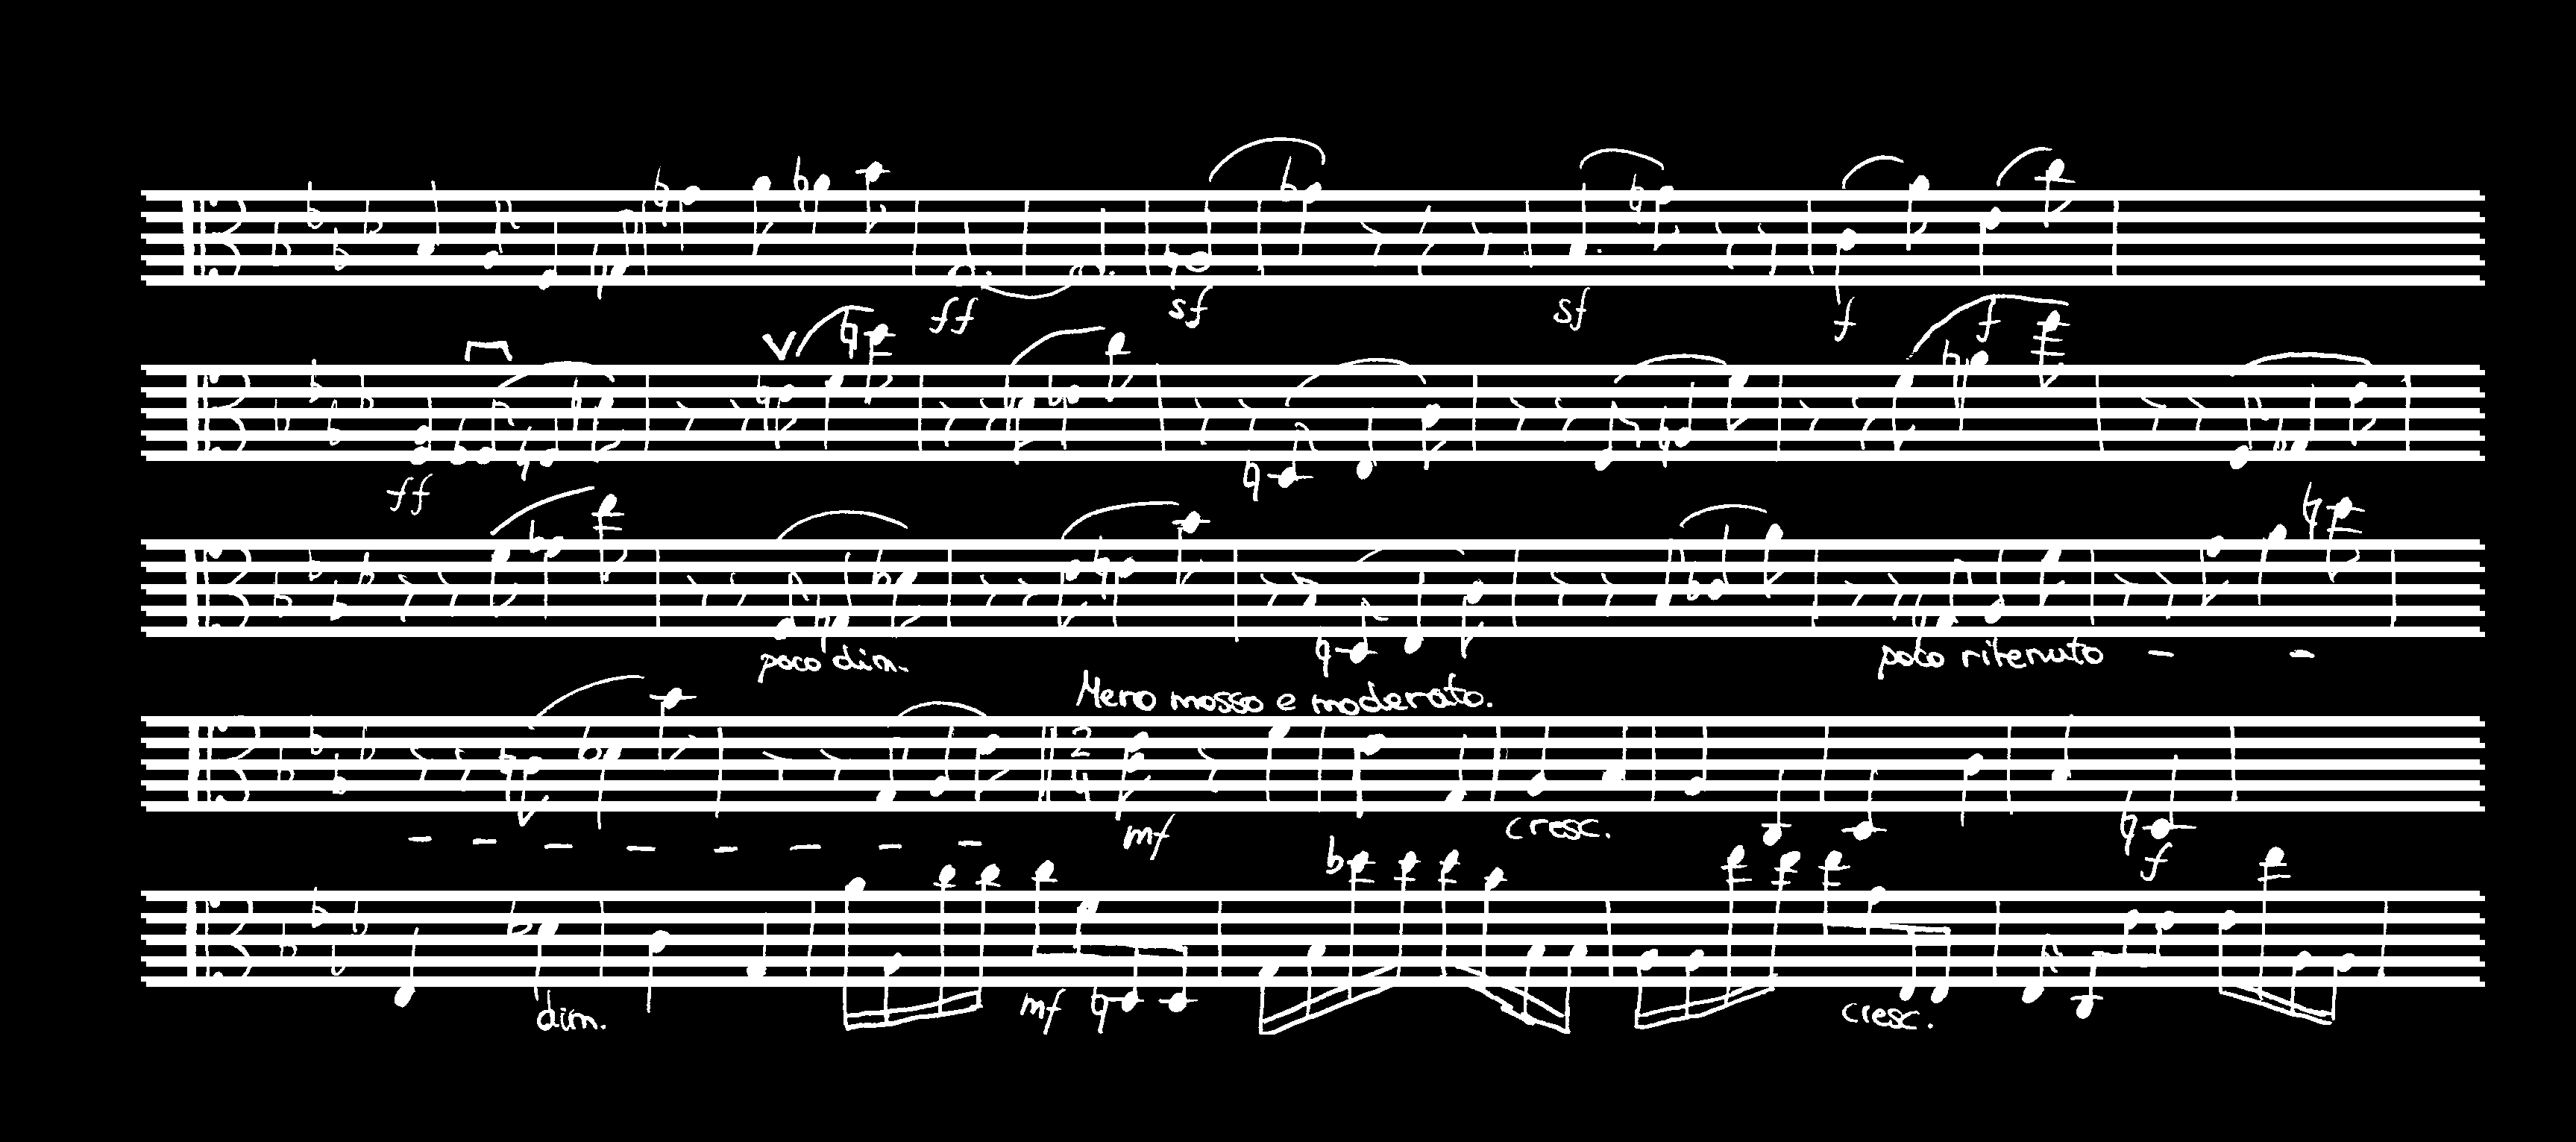 ff sf sf f f
ff
poco dim. poco ritenuto - -
Meno mosso e moderato.
2
4
- - - - - - - - mf cresc. f
dim. mf cresc.